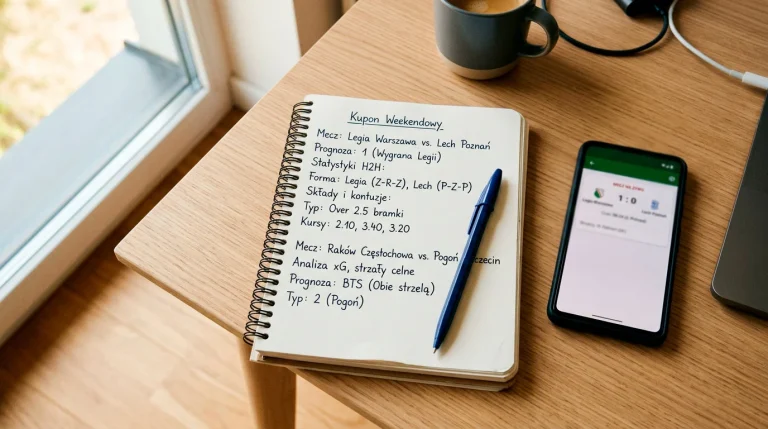 Kupon Weekendowy
Mecz: Legia Warszawa vs. Lech Poznań
Prognoza: 1 (Wygrana Legii)
Statystyki H2H:
Forma: Legia (Z-R-Z), Lech (P-Z-P)
Składy i kontuzje:
Typ: Over 2.5 bramki
Kursy: 2.10, 3.40, 3.20
Mecz: Raków Częstochowa vs. Pogoń zecin
Analiza xG, strzały celne
Prognoza: BTS (Obie strzelą)
Typ: 2 (Pogoń)
1 : 0
Legia Warszawa